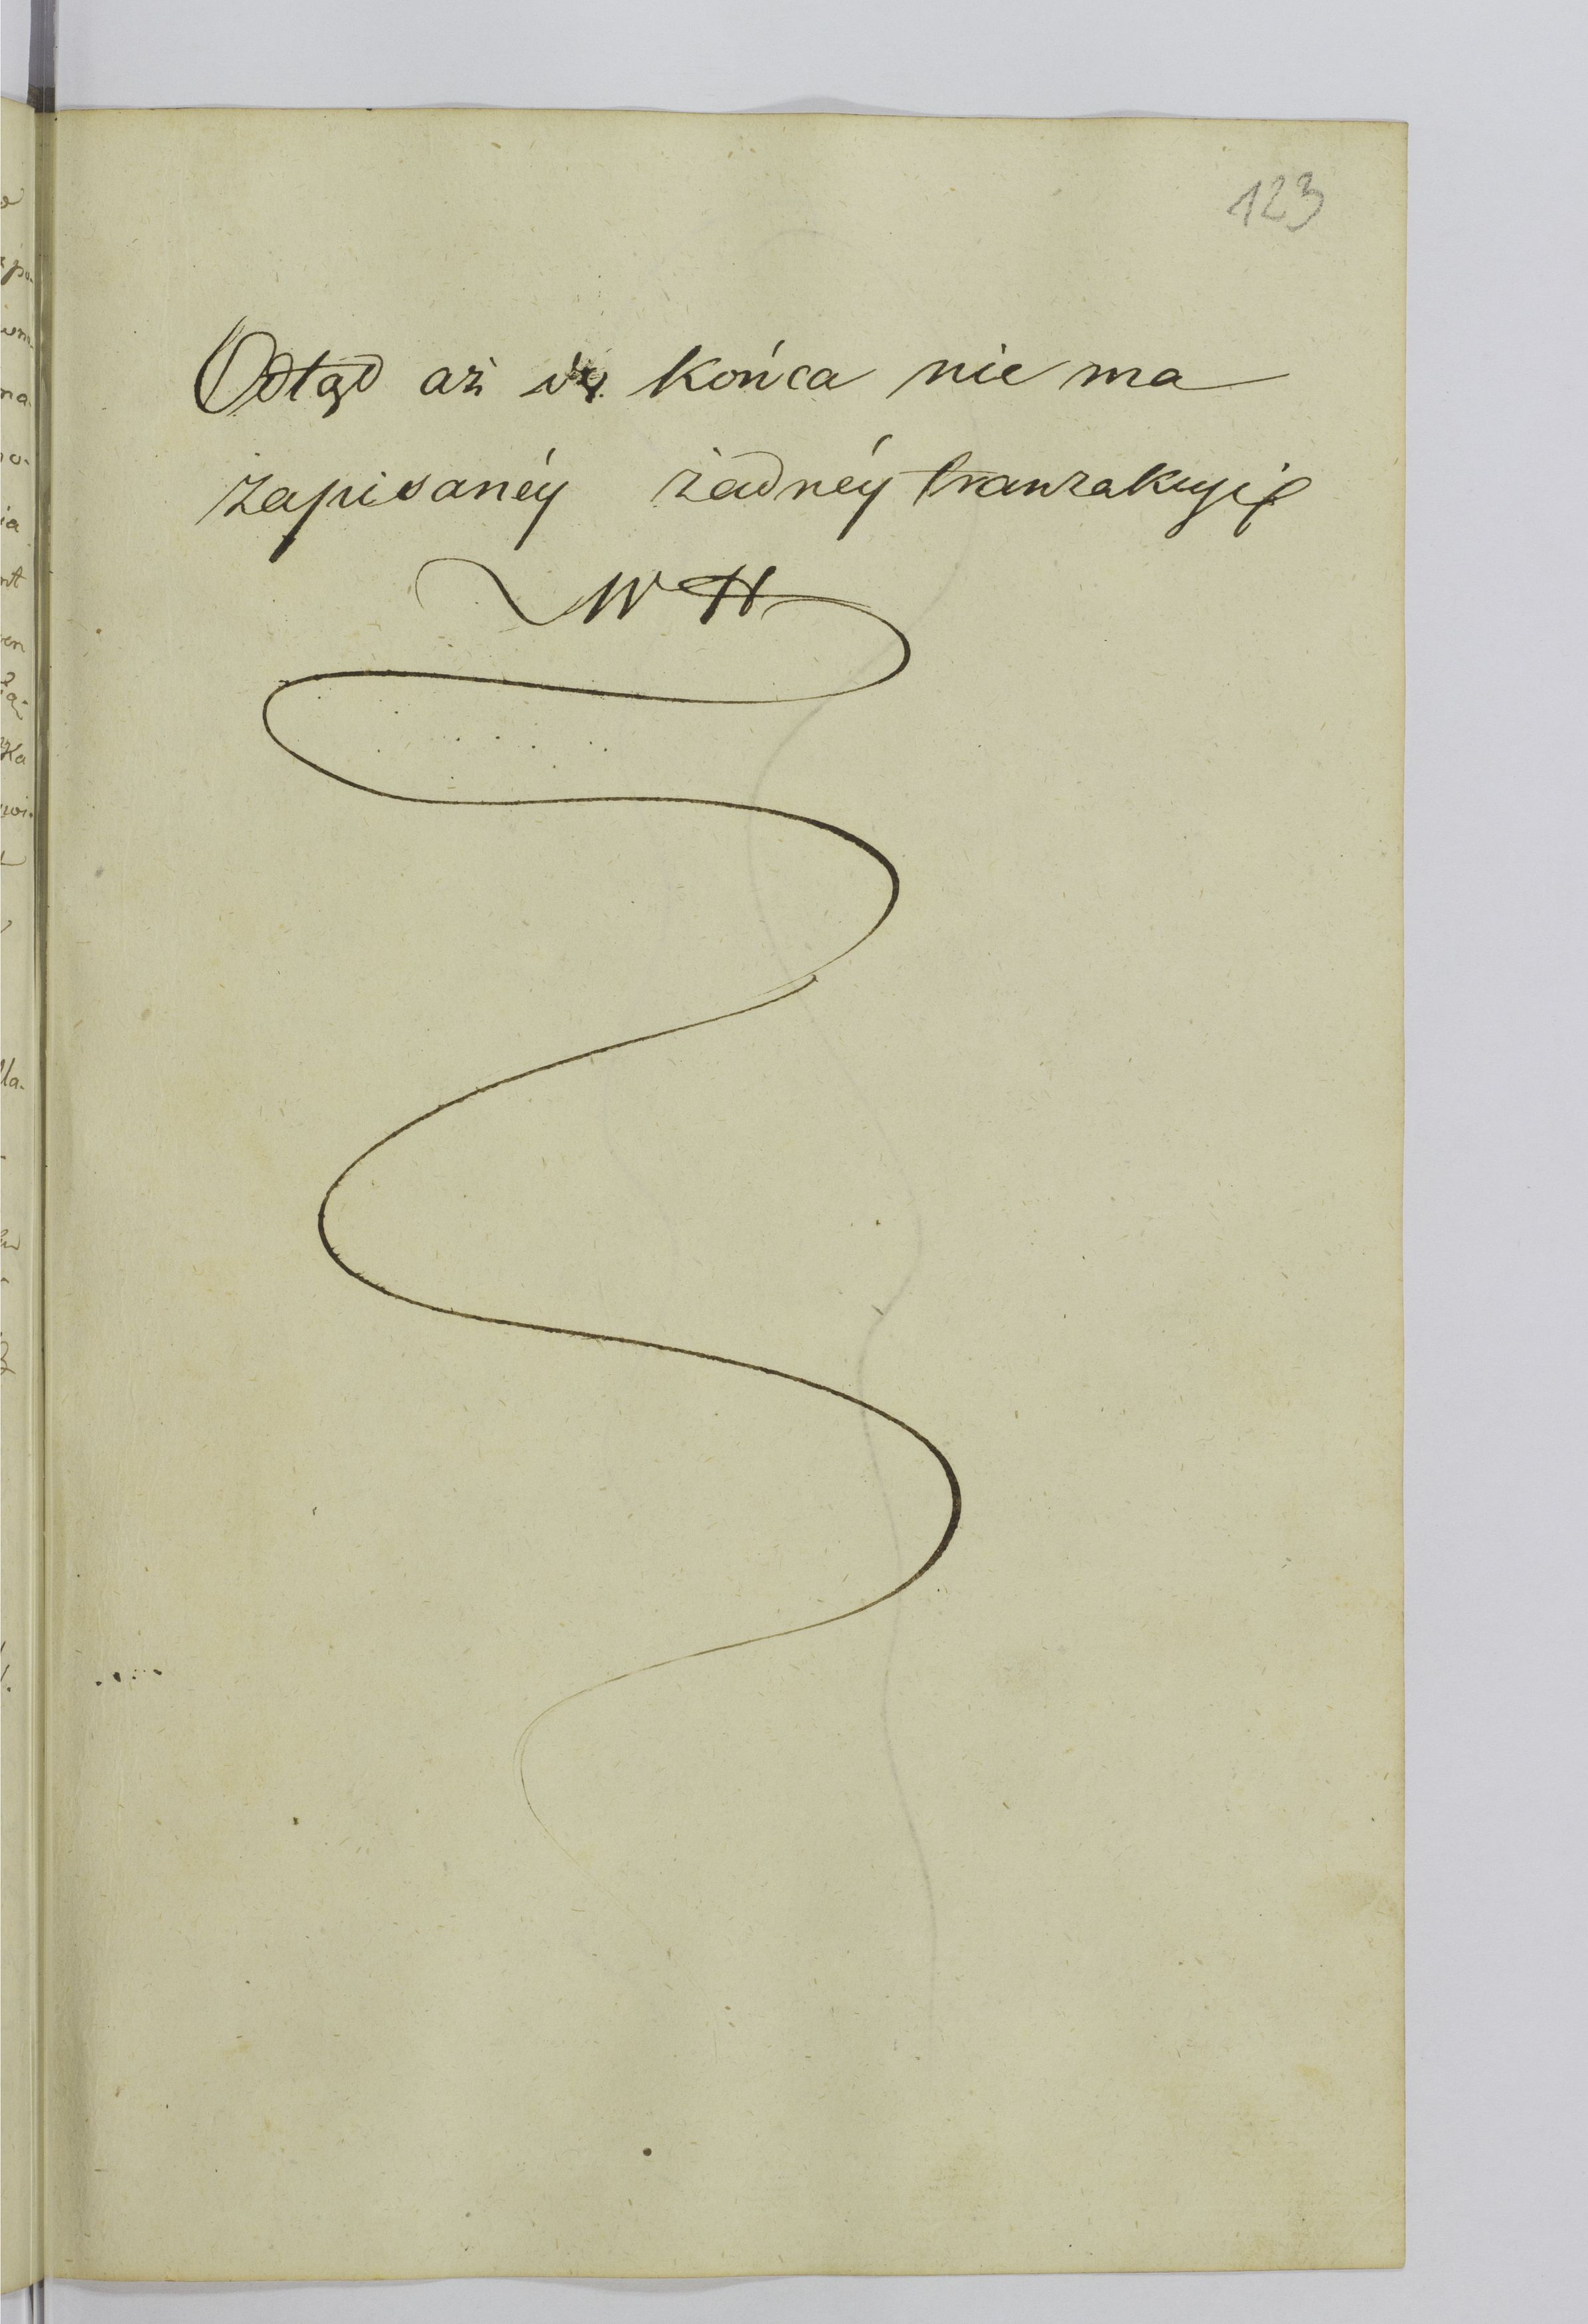 123
Odtąd aż do końca nie ma
zapisanéy żadnéy tranzakcyi
WH